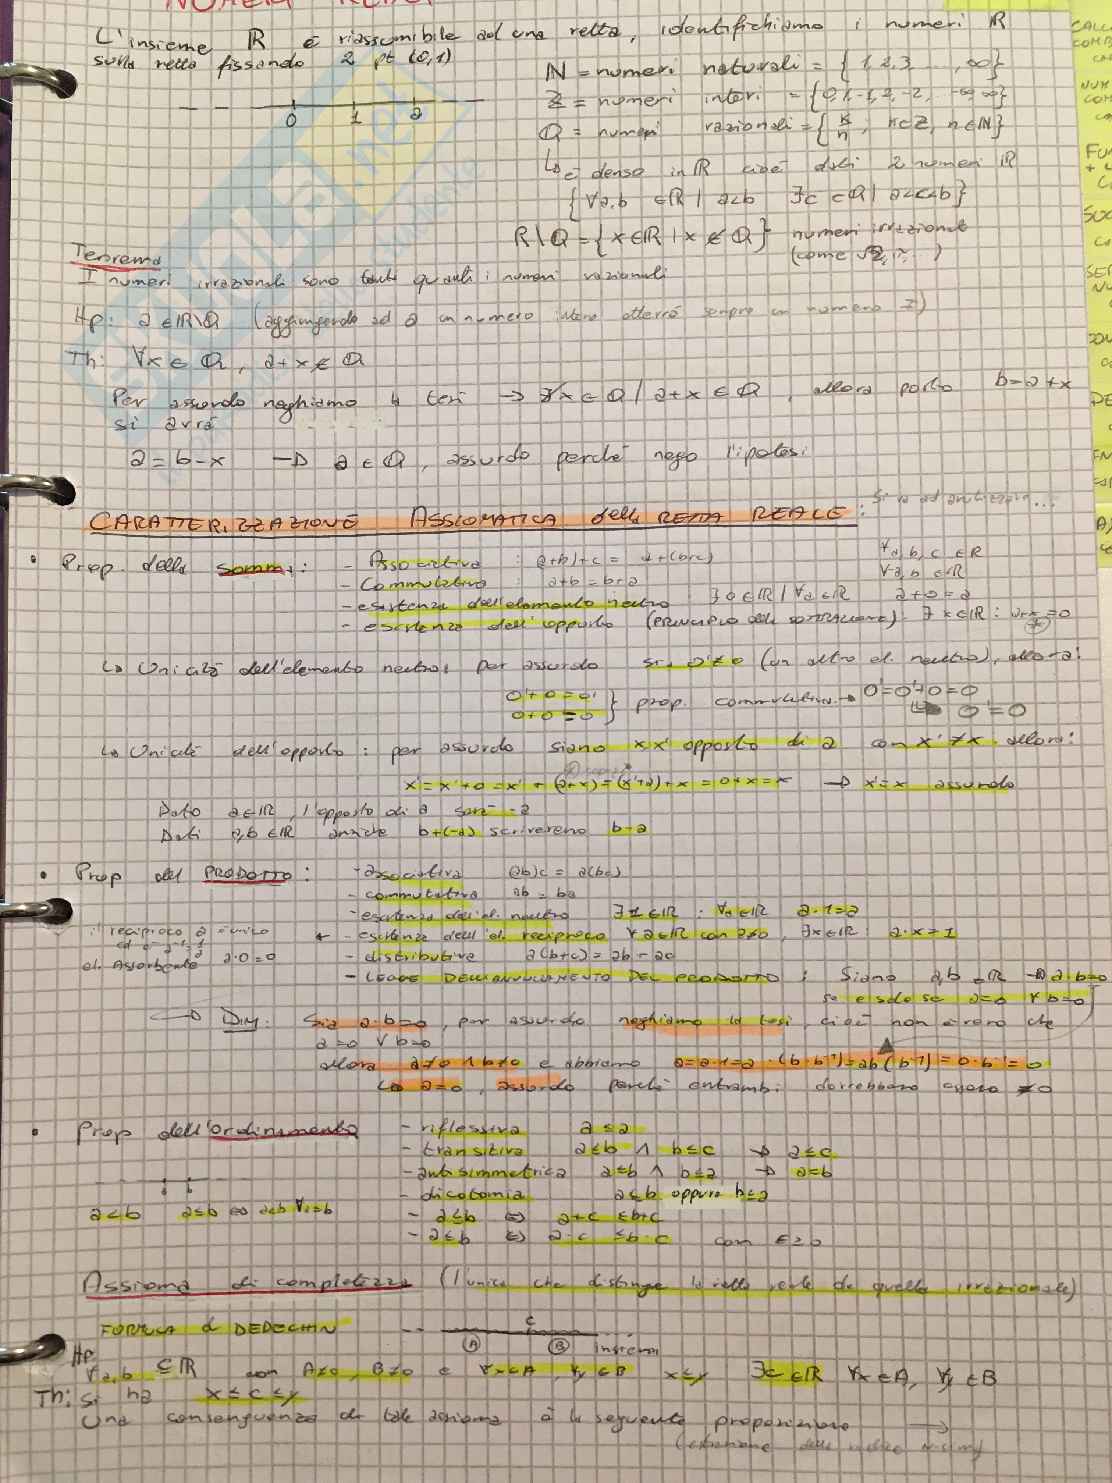 NUMERI REALI
L'insieme ℝ è riassumibile ad una retta, identifichiamo i numeri ℝ
sulla retta fissando 2 pt (0,1)
ℕ = numeri naturali = {1,2,3, ..., ∞}
ℤ = numeri interi = {0,1,-1,2,-2, -∞,∞}
0 1 2
Q = numeri razionali = {k/n ; k∈ℤ, n∈ℕ}
↳ è denso in ℝ cioè dati 2 numeri ℝ
{∀a,b ∈ℝ | a<b ∃c ∈Q | a<c<b}
R\Q = {x∈ℝ | x ∉ Q} numeri irrazionali
(come √2, ...)
Teorema
I numeri irrazionali sono tanti quanti i numeri razionali
Hp: a ∈ℝ\Q (aggiungendo ad a un numero intero otterrò sempre un numero
Th: ∀x ∈ Q, a+x ∉ Q
Per assurdo neghiamo la tesi → x ∈ Q / a+x ∈ Q, allora posto b=a+x
si avrà
a = b-x → a ∈ Q, assurdo perché nego l'ipotesi
CARATTERIZZAZIONE ASSIOMATICA della RETTA REALE:
• Prop. della somma: - Associativa : (a+b)+c = a+(b+c) ∀a,b,c ∈ℝ
- Commutativa : a+b = b+a ∀a,b ∈ℝ
- esistenza dell'elemento neutro ∃0∈ℝ | ∀a∈ℝ a+0=a
- esistenza dell'opposto (PRINCIPIO DELLA SOTTRAZIONE). ∃x∈ℝ : a+x=0
↳ Unicità dell'elemento neutro, per assurdo sia 0'≠0 (un altro el. neutro), allora:
0'+0=0'
0+0'=0 } prop. commutativa → 0'=0'+0=0
0'=0
↳ Unicità dell'opposto : per assurdo siano x x' opposto di a con x'≠x. allora:
x'=x'+0=x'+(a+x)=(x'+a)+x=0+x=x → x'=x assurdo
Dato a∈ℝ, l'opposto di a sarà -a
Dati a,b∈ℝ anziché b+(-a) scriveremo b-a
• Prop del PRODOTTO : - associativa (ab)c = a(bc)
- commutativa ab = ba
- esistenza dell'el. neutro ∃1∈ℝ : ∀a∈ℝ a·1=a
il reciproco è unico
← - esistenza dell'el. reciproco ∀a∈ℝ con a≠0, ∃x∈ℝ : a·x=1
el. Assorbente a·0=0 - distributiva a(b+c)=ab+ac
- LEGGE DELL'ANNULLAMENTO DEL PRODOTTO : Siano a,b ∈ℝ → a·b=0
se e solo se a=0 ∨ b=0
→ Dim: Sia a·b=0, per assurdo neghiamo la tesi, cioè non è vero che
a=0 ∨ b=0
allora a≠0 ∧ b≠0 e abbiamo a=a·1=a·(b·b⁻¹)=ab(b⁻¹)=0·b⁻¹=0
↳ a=0, assurdo perché entrambi dovrebbero essere ≠0
• Prop dell'ordinamento - riflessiva a≤a
- transitiva a≤b ∧ b≤c → a≤c
- antisimmetrica a≤b ∧ b≤a → a=b
- dicotomia a≤b oppure b≤a
a<b a≤b ⇔ a<b ∨ a=b
- a≤b ⇔ a+c ≤b+c
- a≤b ⇔ a·c ≤b·c con
Assioma di completezza (l'unica che distingue la retta reale da quella irrazionale)
FORMULA di DEDECHIN
C
A B insiemi
Hp
∀a,b ⊆ℝ con A≠0, B≠0 e ∀x∈A, ∀y∈B x≤y ∃c∈ℝ ∀x∈A, ∀y∈B
Th: Si ha x ≤ c ≤ y
Una conseguenza di tale assioma è la seguente proposizione →